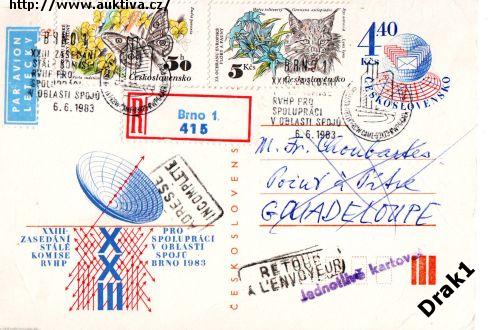 http://www.auktiva.cz/
PAR AVION
LETECKY
BRNO 1
XXIII ZASEDÁNÍ
STÁLÉ KOMISE
RVHP PRO
SPOLUPRÁCI
V OBLASTI SPOJŮ
6.6.1983
50
Československo
5 Kčs
Československo
BRNO 1
RVHP PRO
SPOLUPRÁCI
V OBLASTI SPOJŮ
6.6.1983
4,40
Kčs
ČESKOSLOVENSKO
R
Brno 1.
415
ADRESSE
INCOMPLETE
M. Fr.
Point à Pitre
GUADELOUPE
ČESKOSLOVENSKO
XXIII.
ZASEDÁNÍ
STÁLÉ
KOMISE
RVHP
XXIII
PRO
SPOLUPRÁCI
V OBLASTI
SPOJŮ
BRNO 1983
RETOUR
A L'ENVOYEUR
Jednotlivě kartovat
Drak1